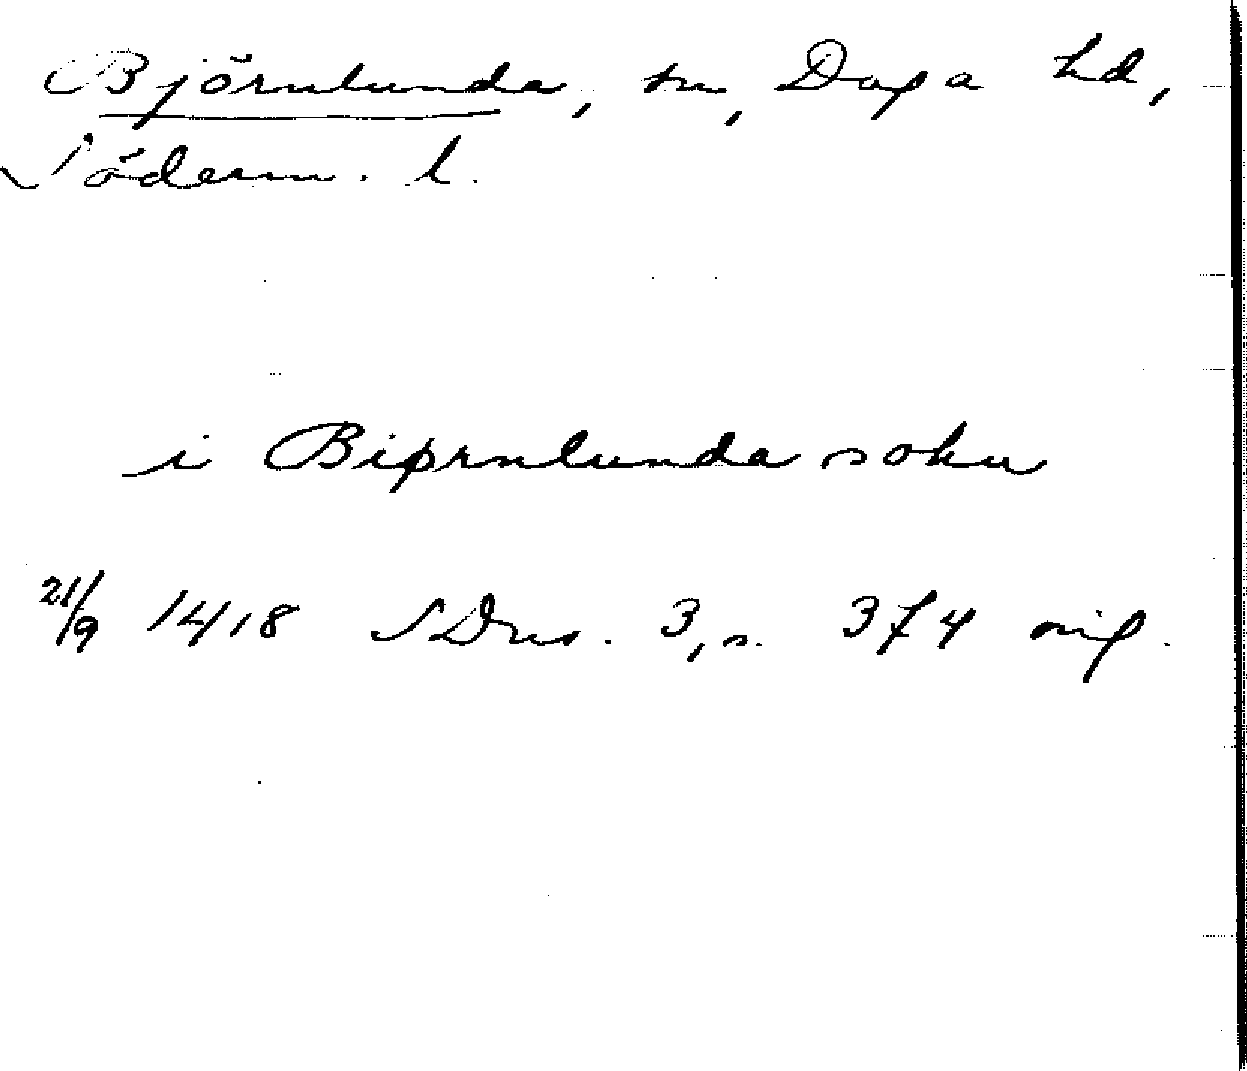 Björnlunda, sn, Daga hd,
Söderm. l.
i Biørnlunda sokn
21/9 1418 SDns. 3, s. 374 orig.